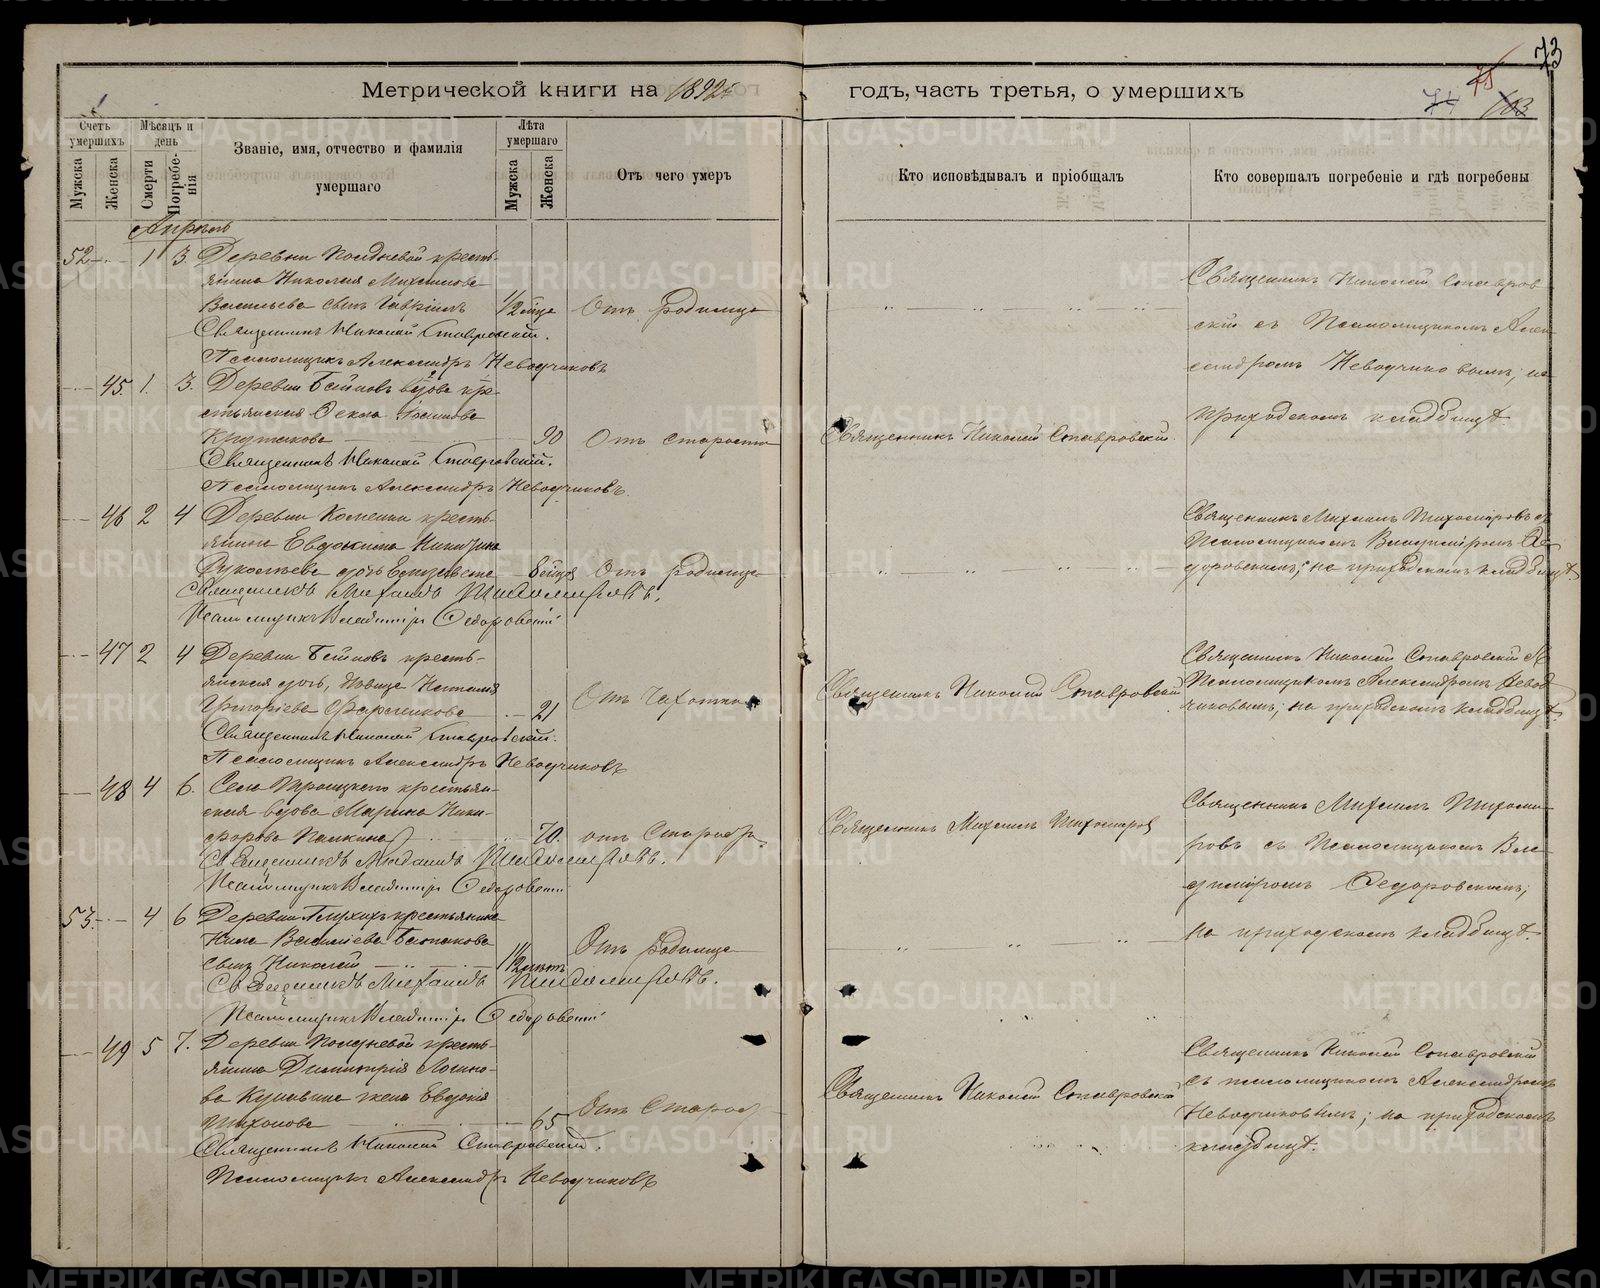 73
75
74 103
Метрической книги на 1892й
годъ, часть третья, о умершихъ
Счетъ умершихъ
Мѣсяцъ и день
Званіе, имя, отчество и фамилія умершаго
Лѣта умершаго
Отъ чего умеръ
Кто исповѣдывалъ и пріобщалъ
Кто совершалъ погребеніе и гдѣ погребены
Мужска
Женска
Смерти
Погребенія
Мужска
Женска
Апрѣль
52 1 3 Деревни Полдневой кресть-
янина Николая Михаилова
Васильева сынъ Гавріилъ 1/2 мца Отъ родимца
Священникъ Николай Ставровскій.
Псаломщикъ Александръ Неводчиковъ
Священникъ Николай Ставров-
скій съ Псаломщикомъ Алек-
сандромъ Неводчиковымъ; на
приходскомъ кладбищѣ.
45. 1. 3. Деревни вдова кре-
стьянская Фекла
90 Отъ старости
Священникъ Николай Ставровскій.
Священникъ Николай Ставровскій.
Псаломщикъ Александръ Неводчиковъ.
46 2 4 Деревни кресть-
янина Никитина
дочь Елизавета 8 мцев Отъ родимца
Священникъ Михаилъ Тихомировъ.
Псаломщикъ Владиміръ Федоровскій
Священникъ Михаилъ Тихомировъ съ
Псаломщикомъ Владиміромъ Фе-
доровскимъ; на приходскомъ кладбищѣ.
47 2 4 Деревни кресть-
янская дочь, дѣвица Наталія
Григоріева 21 Отъ чахотки
Священникъ Николай Ставровскій
Священникъ Николай Ставровскій.
Псаломщикъ Александръ Неводчиковъ
Священникъ Николай Ставровскій съ
Псаломщикомъ Александромъ Невод-
чиковымъ; на приходскомъ кладбищѣ.
48 4 6. Села Троицкаго крестьян-
ская вдова Марина Ники-
форова Палкина 70. отъ Старости
Священникъ Михаилъ Тихомиров
Священникъ Михаилъ Тихомировъ.
Псаломщикъ Владиміръ Федоровскій
Священникъ Михаилъ Тихоми-
ровъ съ Псаломщикомъ Вла-
диміромъ Федоровскимъ;
на приходскомъ кладбищѣ.
53. 4 6 Деревни Глухихъ крестьянина
Василіева
сынъ Николай 1/2 Отъ родимца
Священникъ Михаилъ Тихомировъ.
Псаломщикъ Владиміръ Федоровскій
49 5 7. Деревни Полдневой кресть-
янина Димитрія Логино-
ва жена Евдокія
Тихонова 65 Отъ Старос
Священникъ Николай Ставровскій
Священникъ Николай Ставровскій.
Псаломщикъ Александръ Неводчиковъ
Священникъ Николай Ставровскій
съ псаломщикомъ Александромъ
Неводчиковымъ; на приходскомъ
кладбищѣ.
METRIKI.GASO-URAL.RU